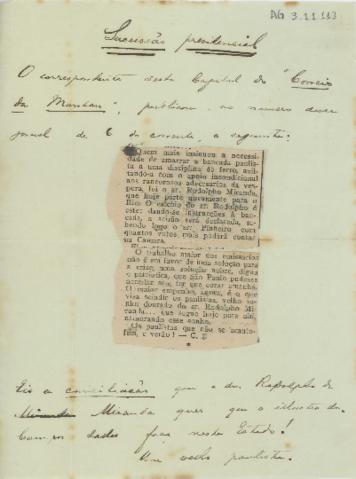 AG 3.11.113
Successão presidencial
O correspondente desta Capital do "Correio
da Manhan", publicou no numero desse
jornal de 6 do corrente, o seguinte:
Quem mais insinuou a necessi-
dade de amarrar a bancada paulis-
ta á uma disciplina de ferro, evi-
tando-a com o apoio incondicional
aos rancorosos adversarios da ves-
pera, foi o sr. Rodolpho Miranda,
que hoje parte novamente para o
Rio. O calculo do sr. Rodolpho é
este: dando-se instrucções á ban-
cada, a scisão será declarada, sa-
bendo logo o sr. Pinheiro com
quantos votos mais poderá contar
na Camara.
O trabalho maior dos emissarios
não é em favor de uma solução para
a crise, uma solução nobre, digna
e patriotica, que São Paulo pudesse
acceitar sem
O maior empenho, agora, é o que
visa scindir os paulistas, velho so-
nho dourado do sr. Rodolpho Mi-
randa... que segue hoje para ahi,
namorando esse sonho.
Os paulistas que não se acaute-
lem, e verão! — C. E
Eis a conciliação que o dr. Rodolpho de
Miranda quer que o illustre dr.
Campos Salles faça neste Estado!
Um velho paulista.